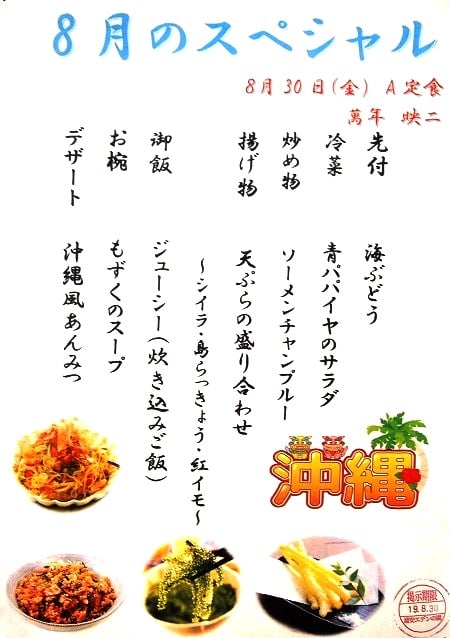 8月のスペシャル
8月30日(金) A定食
萬年 映二
先付 海ぶどう
冷菜 青パパイヤのサラダ
炒め物 ソーメンチャンプルー
揚げ物 天ぷらの盛り合わせ
～シイラ・島らっきょう・紅イモ～
御飯 ジューシー(炊き込みご飯)
お椀 もずくのスープ
デザート 沖縄風あんみつ
沖縄
掲示期限
19.8.30